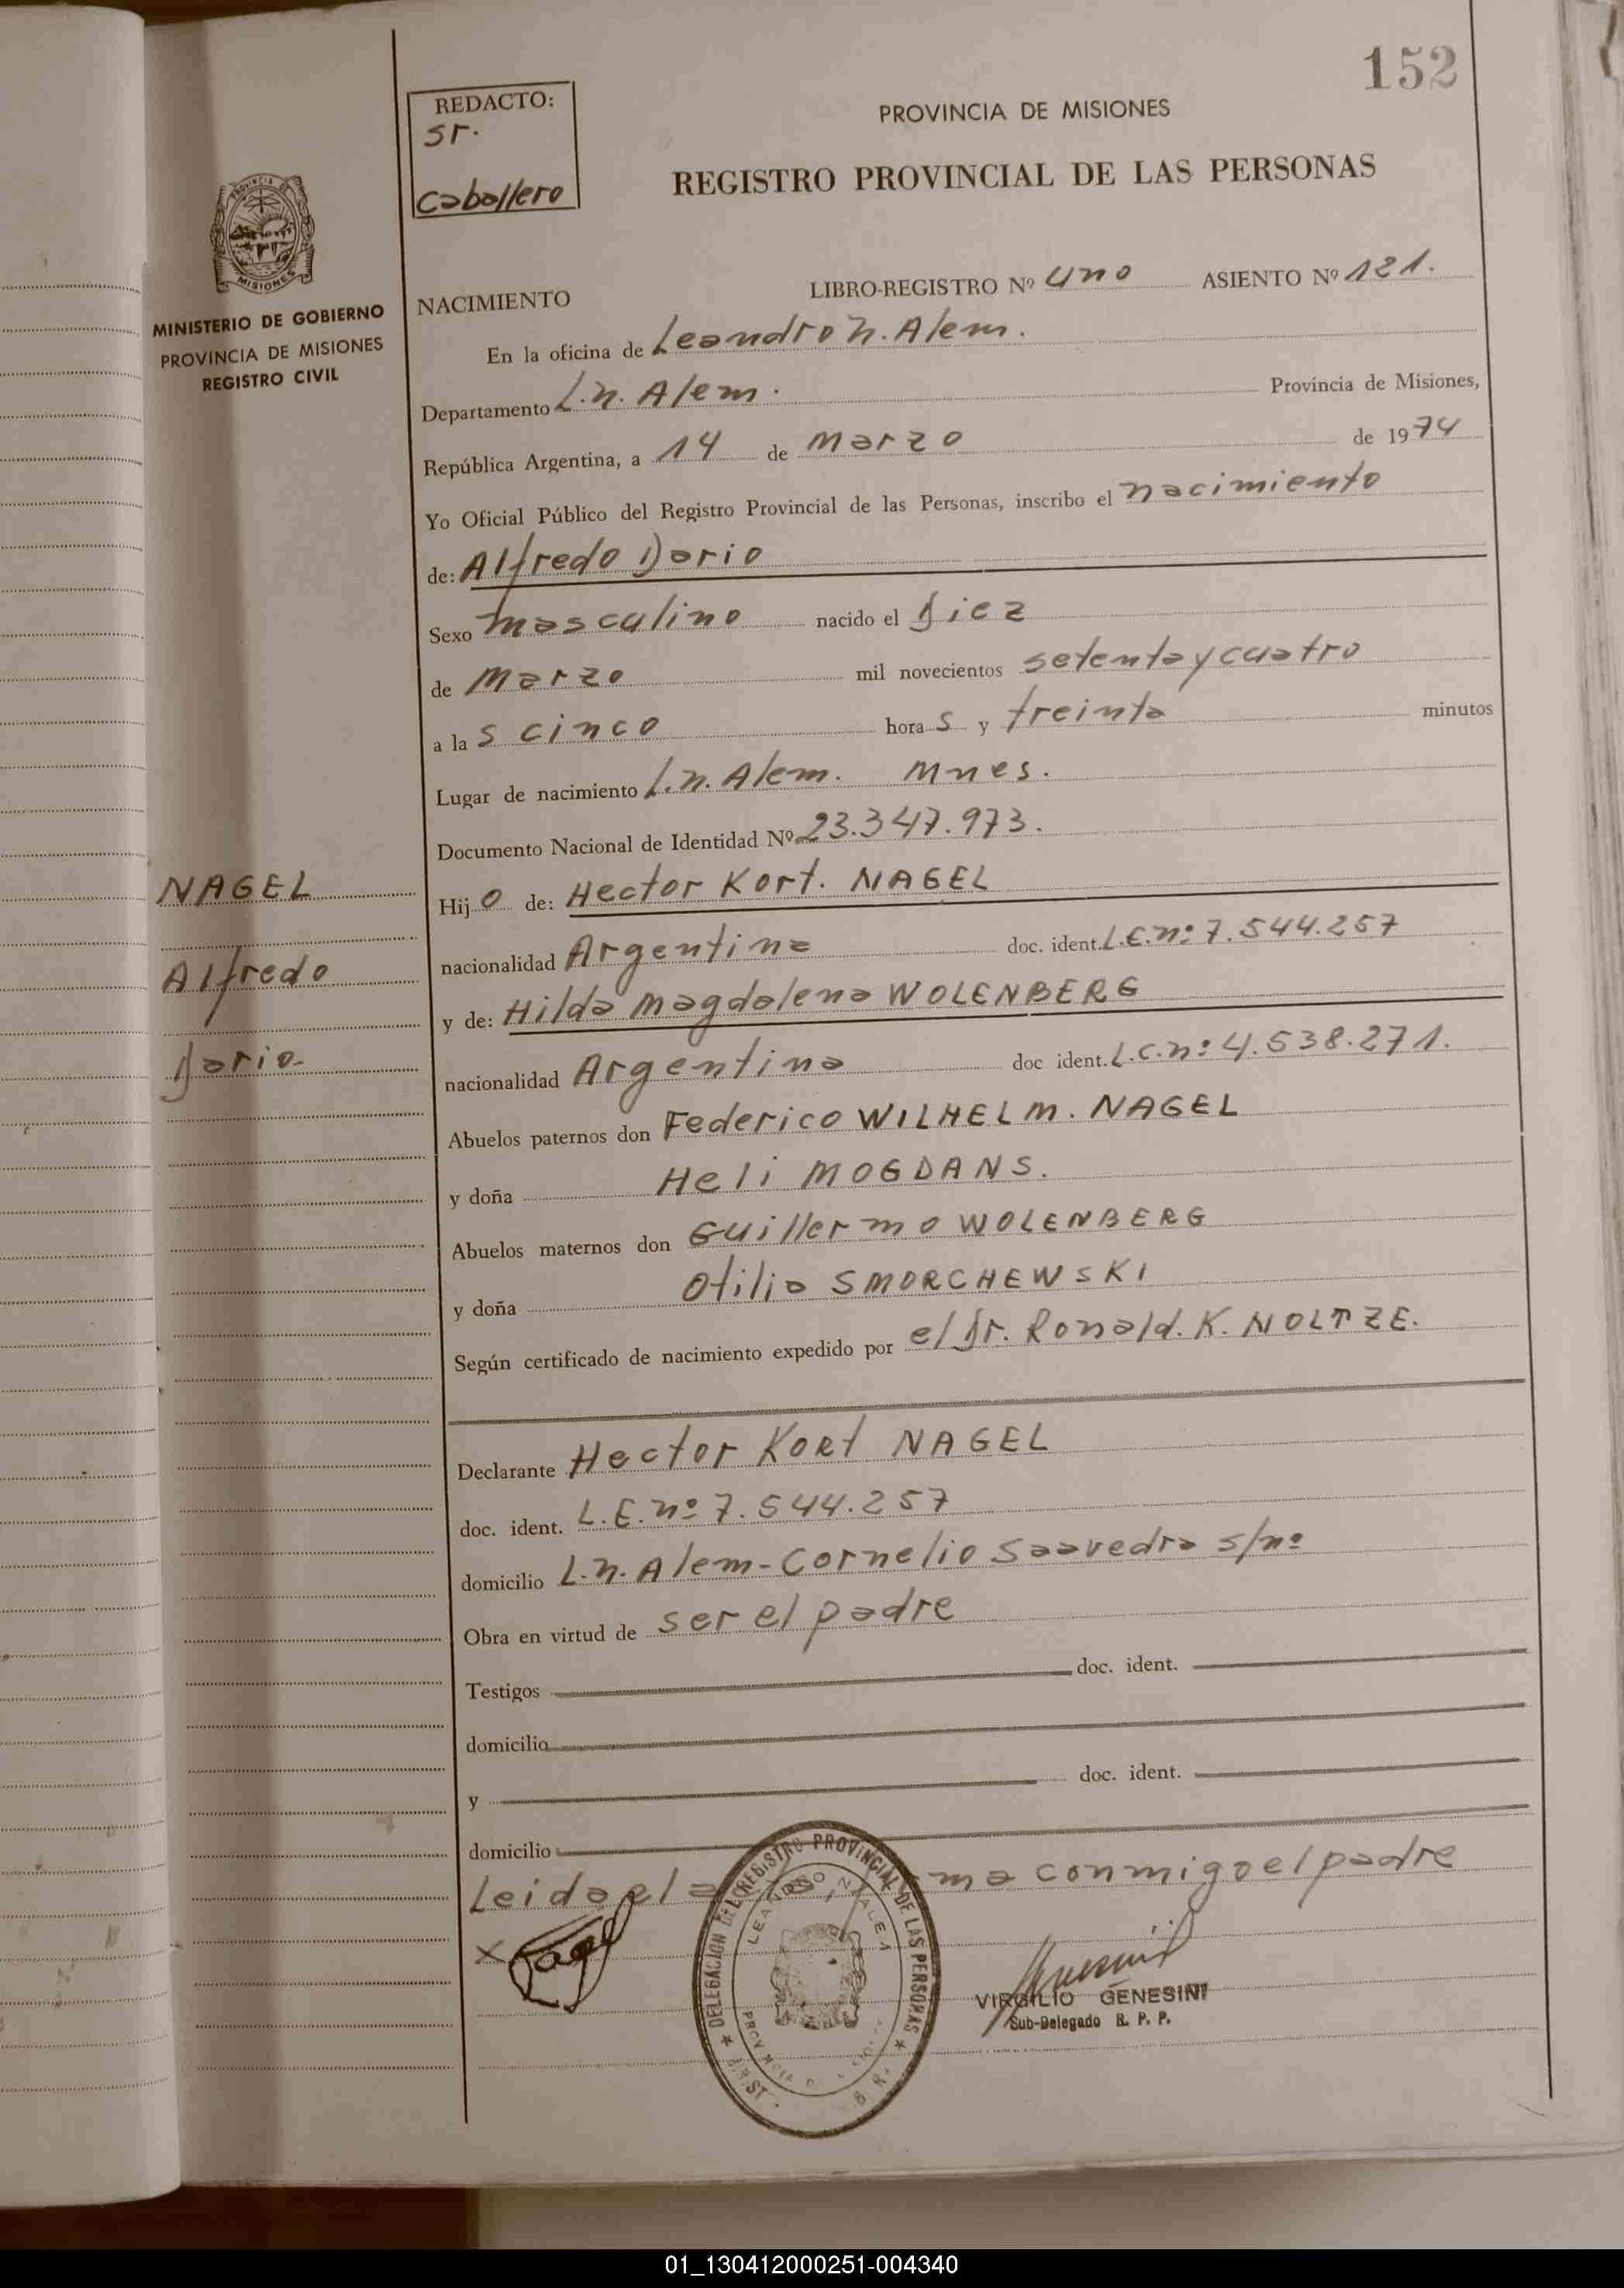 152
REDACTO:
sr.
Caballero
PROVINCIA DE MISIONES
REGISTRO PROVINCIAL DE LAS PERSONAS
PROVINCIA DE
MISIONES
MINISTERIO DE GOBIERNO
PROVINCIA DE MISIONES
REGISTRO CIVIL
NACIMIENTO LIBRO-REGISTRO Nº uno ASIENTO Nº 121.
En la oficina de Leandro N. Alem.
Departamento L.N. Alem. Provincia de Misiones,
República Argentina, a 14 de Marzo de 1974
Yo Oficial Público del Registro Provincial de las Personas, inscribo el nacimiento
de: Alfredo Dario
Sexo masculino nacido el diez
de Marzo mil novecientos setenta y cuatro
a la s cinco hora s y treinta minutos
Lugar de nacimiento L.N. Alem. Mnes.
Documento Nacional de Identidad Nº 23.347.973.
NAGEL
Hij o de: Hector Kort. NAGEL
nacionalidad Argentina doc. ident. L.E.nº 7.544.257
Alfredo
y de: Hilda Magdalena WOLENBERG
Dario
nacionalidad Argentina doc ident. L.C.nº 4.538.271.
Abuelos paternos don Federico WILHELM. NAGEL
y doña Heli MOGDANS.
Abuelos maternos don Guillermo WOLENBERG
y doña Otilia SMORCHEWSKI
Según certificado de nacimiento expedido por el Dr. Ronald. K. NOLTZE.
Declarante Hector Kort NAGEL
doc. ident. L.E.nº 7.544.257
domicilio L.N. Alem-Cornelio Saavedra s/nº
Obra en virtud de ser el padre
Testigos doc. ident.
domicilio
y doc. ident.
domicilio
Leida el conmigo el padre
x Nagel
DELEGACION DEL REGISTRO PROVINCIAL DE LAS PERSONAS
LEANDRO N. ALEM
VIRGILIO GENESINI
Sub-Delegado R. P. P.
01_130412000251-004340